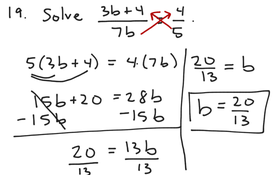 19. Solve (3b+4)/7b = 4/5
5(3b+4) = 4·(7b)
15b+20 = 28b
-15b -15b
20/13 = 13b/13
20/13 = b
b = 20/13